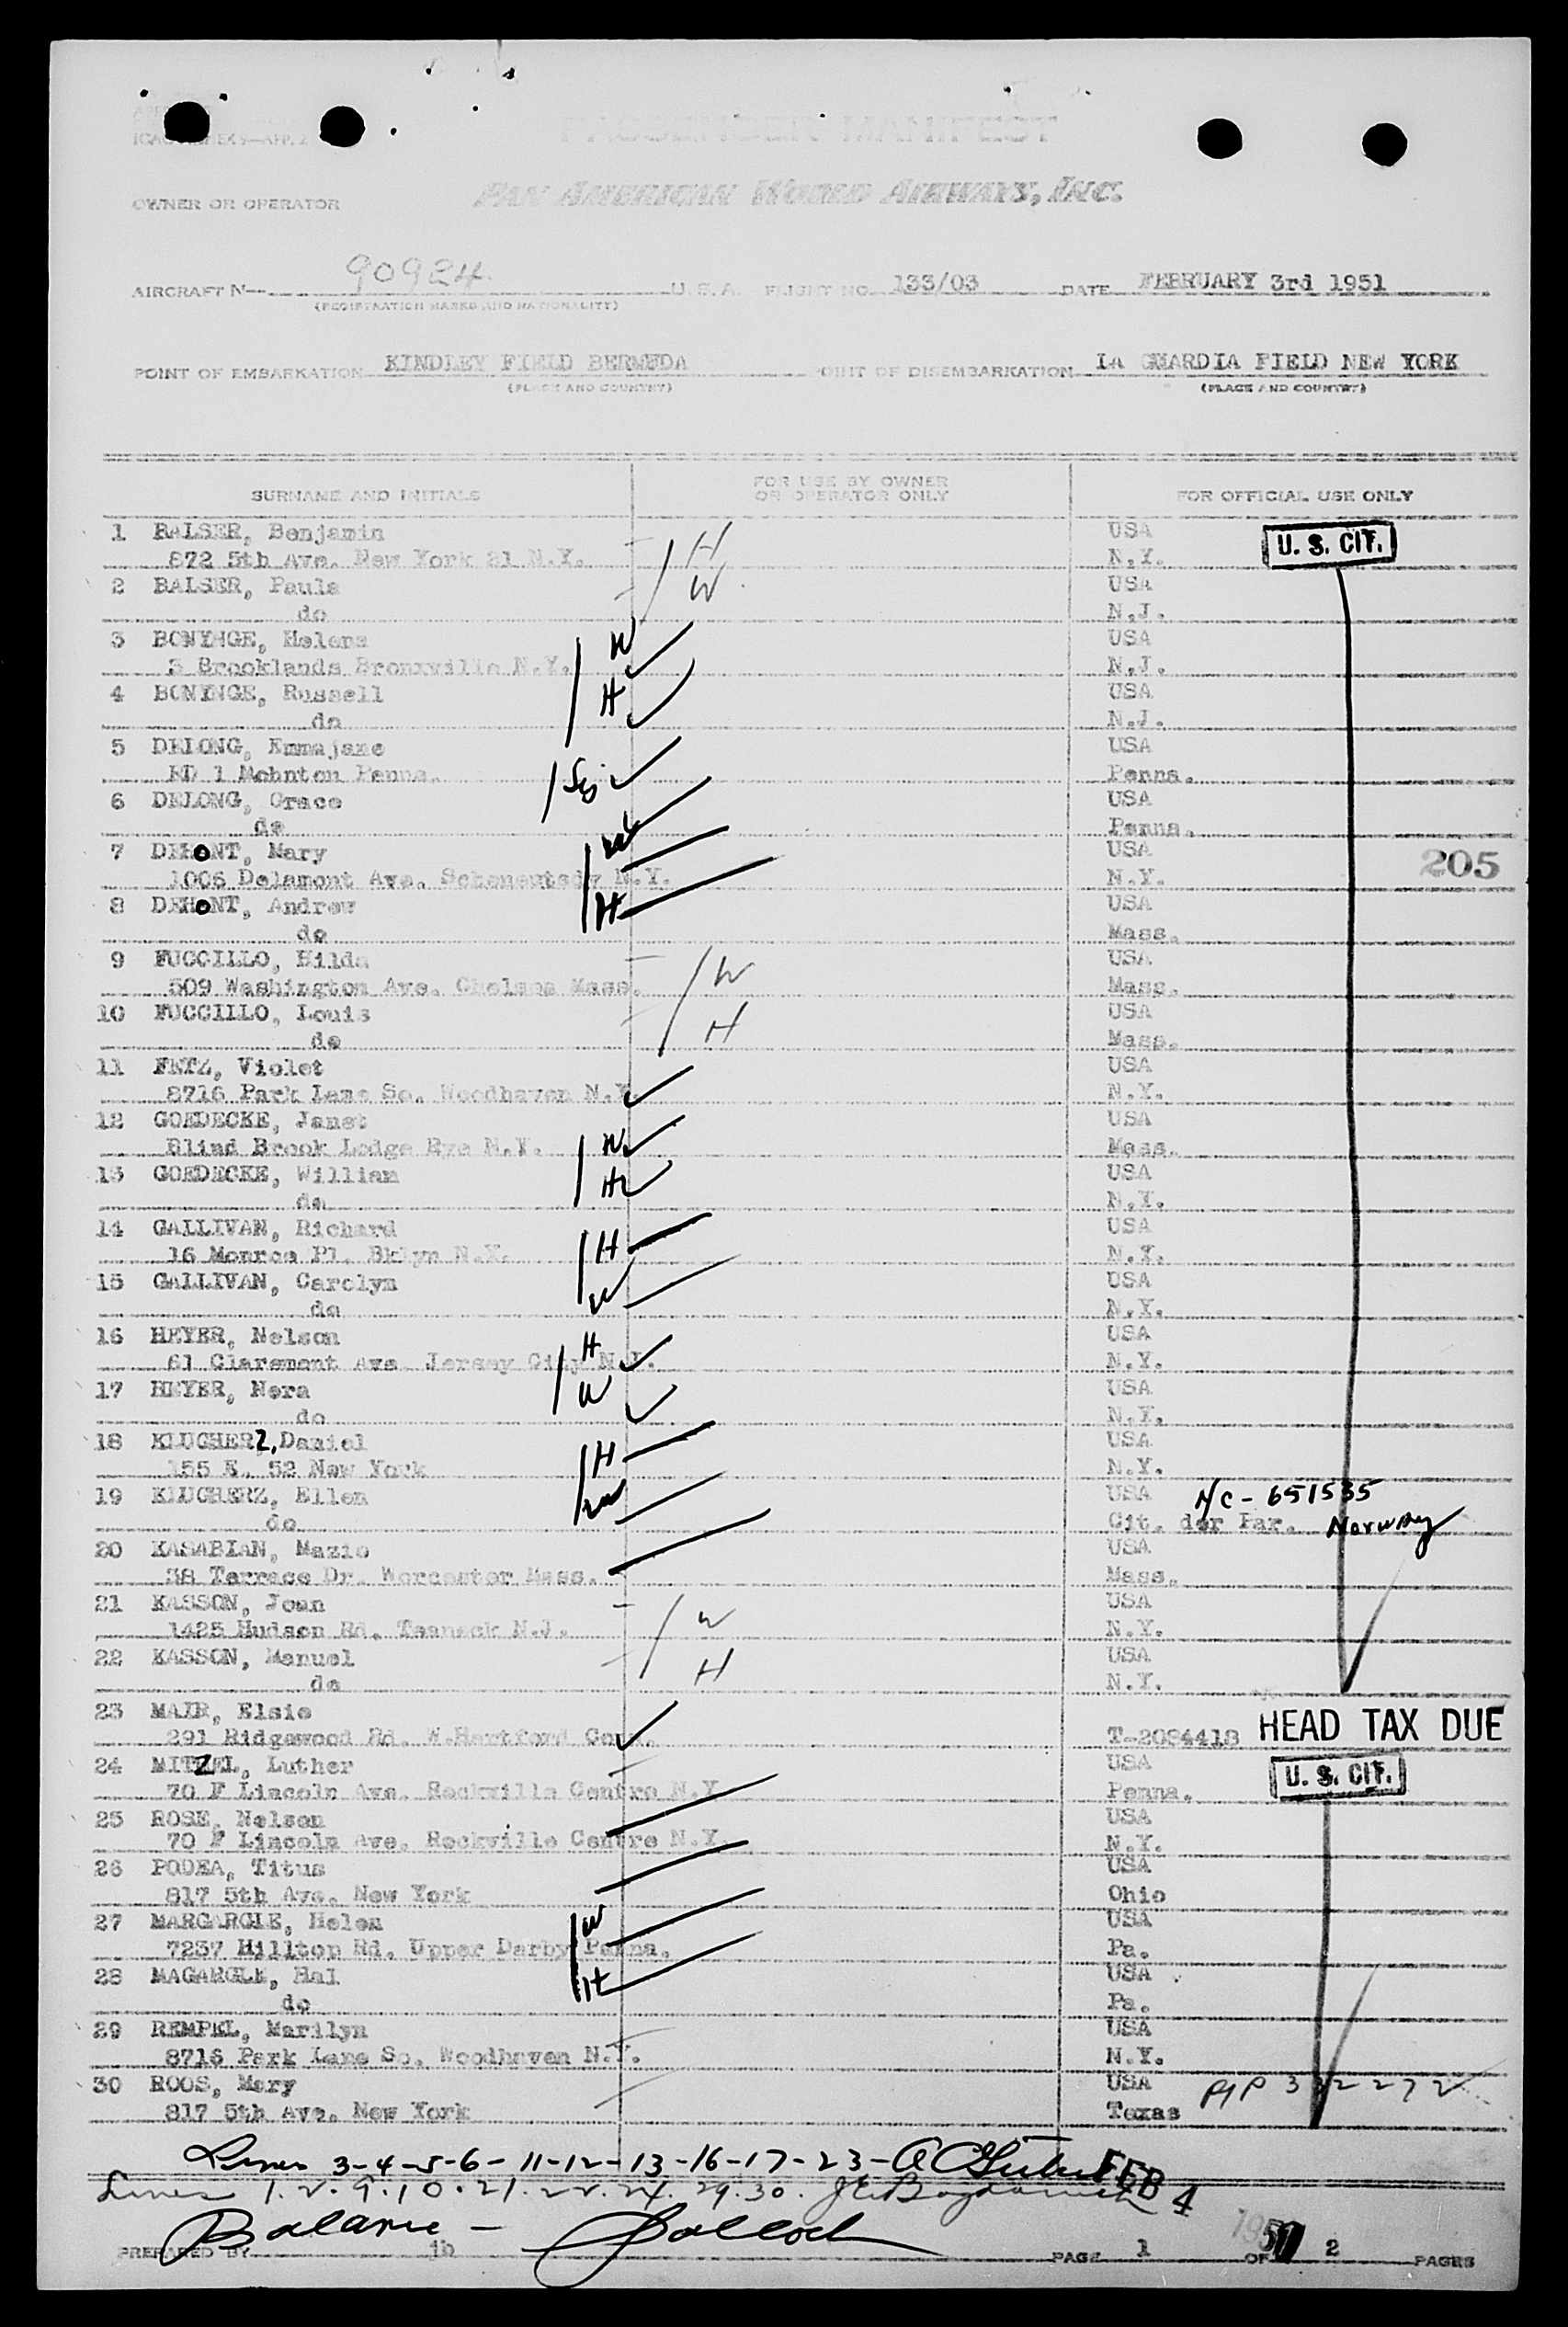 PASSENGER MANIFEST
PAN AMERICAN WORLD AIRWAYS, INC.
OWNER OR OPERATOR
AIRCRAFT N— 90924 U. S. A. FLIGHT NO. 133/03 DATE FEBRUARY 3rd 1951
(REGISTRATION MARKS AND NATIONALITY)
POINT OF EMBARKATION KINDLEY FIELD BERMUDA POINT OF DISEMBARKATION LA GUARDIA FIELD NEW YORK
(PLACE AND COUNTRY) (PLACE AND COUNTRY)
SURNAME AND INITIALS FOR USE BY OWNER OR OPERATOR ONLY FOR OFFICIAL USE ONLY
1 BALSER, Benjamin H USA U. S. CIT.
872 5th Ave. New York 21 N.Y. N.Y.
2 BALSER, Paula W USA
do N.J.
3 BONYNGE, Helena W USA
3 Brooklands Bronxville N.Y. N.J.
4 BONYNGE, Russell H USA
do N.J.
5 DELONG, Emmajane USA
RD 1 Mohnton Penna. Penna.
6 DELONG, Grace USA
do Penna.
7 DEMONT, Mary USA
1006 Delamont Ave. Schenectady N.Y. N.Y. 205
8 DEMONT, Andrew H USA
do Mass.
9 FUCCILLO, Hilda W USA
509 Washington Ave. Chelsea Mass. Mass.
10 FUCCILLO, Louis H USA
do Mass.
11 FETZ, Violet USA
8716 Park Lane So. Woodhaven N.Y. N.Y.
12 GOEDECKE, Janet W USA
Blind Brook Lodge Rye N.Y. Mass.
13 GOEDECKE, William H USA
do N.Y.
14 GALLIVAN, Richard H USA
16 Monroe Pl. Bklyn N.Y. N.Y.
15 GALLIVAN, Carolyn W USA
do N.Y.
16 HEYER, Nelson H USA
61 Claremont Ave. Jersey City N.J. N.Y.
17 HEYER, Nora W USA
do N.Y.
18 KLUGHERZ, Daniel H USA
155 E. 52 New York N.Y.
19 KLUGHERZ, Ellen W USA N/C - 651535
do Cit. der Par. Norway
20 KASABIAN, Mazie USA
38 Terrace Dr. Worcester Mass. Mass.
21 KASSON, Joan W USA
1425 Hudson Rd. Teaneck N.J. N.Y.
22 KASSON, Manuel H USA
do N.Y.
23 MAIR, Elsie
291 Ridgewood Rd. W.Hartford Conn. T-2084418 HEAD TAX DUE
24 MITZEL, Luther USA U. S. CIT.
70 F Lincoln Ave. Rockville Centre N.Y. Penna.
25 ROSE, Nelson USA
70 F Lincoln Ave. Rockville Centre N.Y. N.Y.
26 PODEA, Titus USA
817 5th Ave. New York Ohio
27 MARGARGLE, Helen W USA
7237 Hilltop Rd. Upper Darby Penna. Pa.
28 MAGARGLE, Hal H USA
do Pa.
29 REMPEL, Marilyn USA
8716 Park Lane So. Woodhaven N.Y. N.Y.
30 ROOS, Mary USA
817 5th Ave. New York Texas
Lines 3-4-5-6-11-12-13-16-17-23-
Lines 1.2.9.10.21.22.24.29.30. FEB 4
Balance - 1951
PREPARED BY jb PAGE 1 OF 2 PAGES